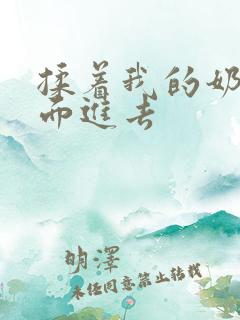 揉着我的奶
而进去
明澤
未经同意禁止转载